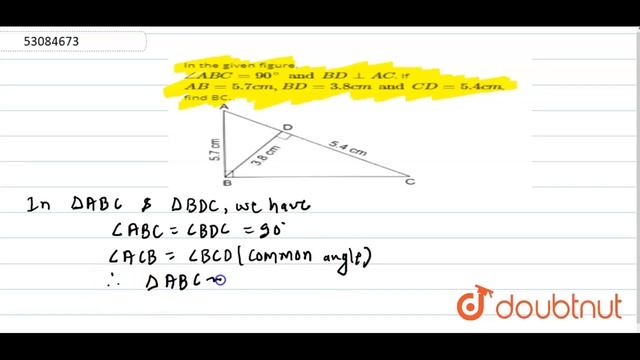 53084673
In the given figure,
∠ABC = 90° and BD ⊥ AC. If
AB = 5.7cm, BD = 3.8cm and CD = 5.4cm,
find BC.
A
D
5.7 cm
3.8 cm
5.4 cm
B
C
In △ABC & △BDC, we have
∠ABC = ∠BDC = 90°
∠ACB = ∠BCD (common angle)
∴ △ABC ~
doubtnut